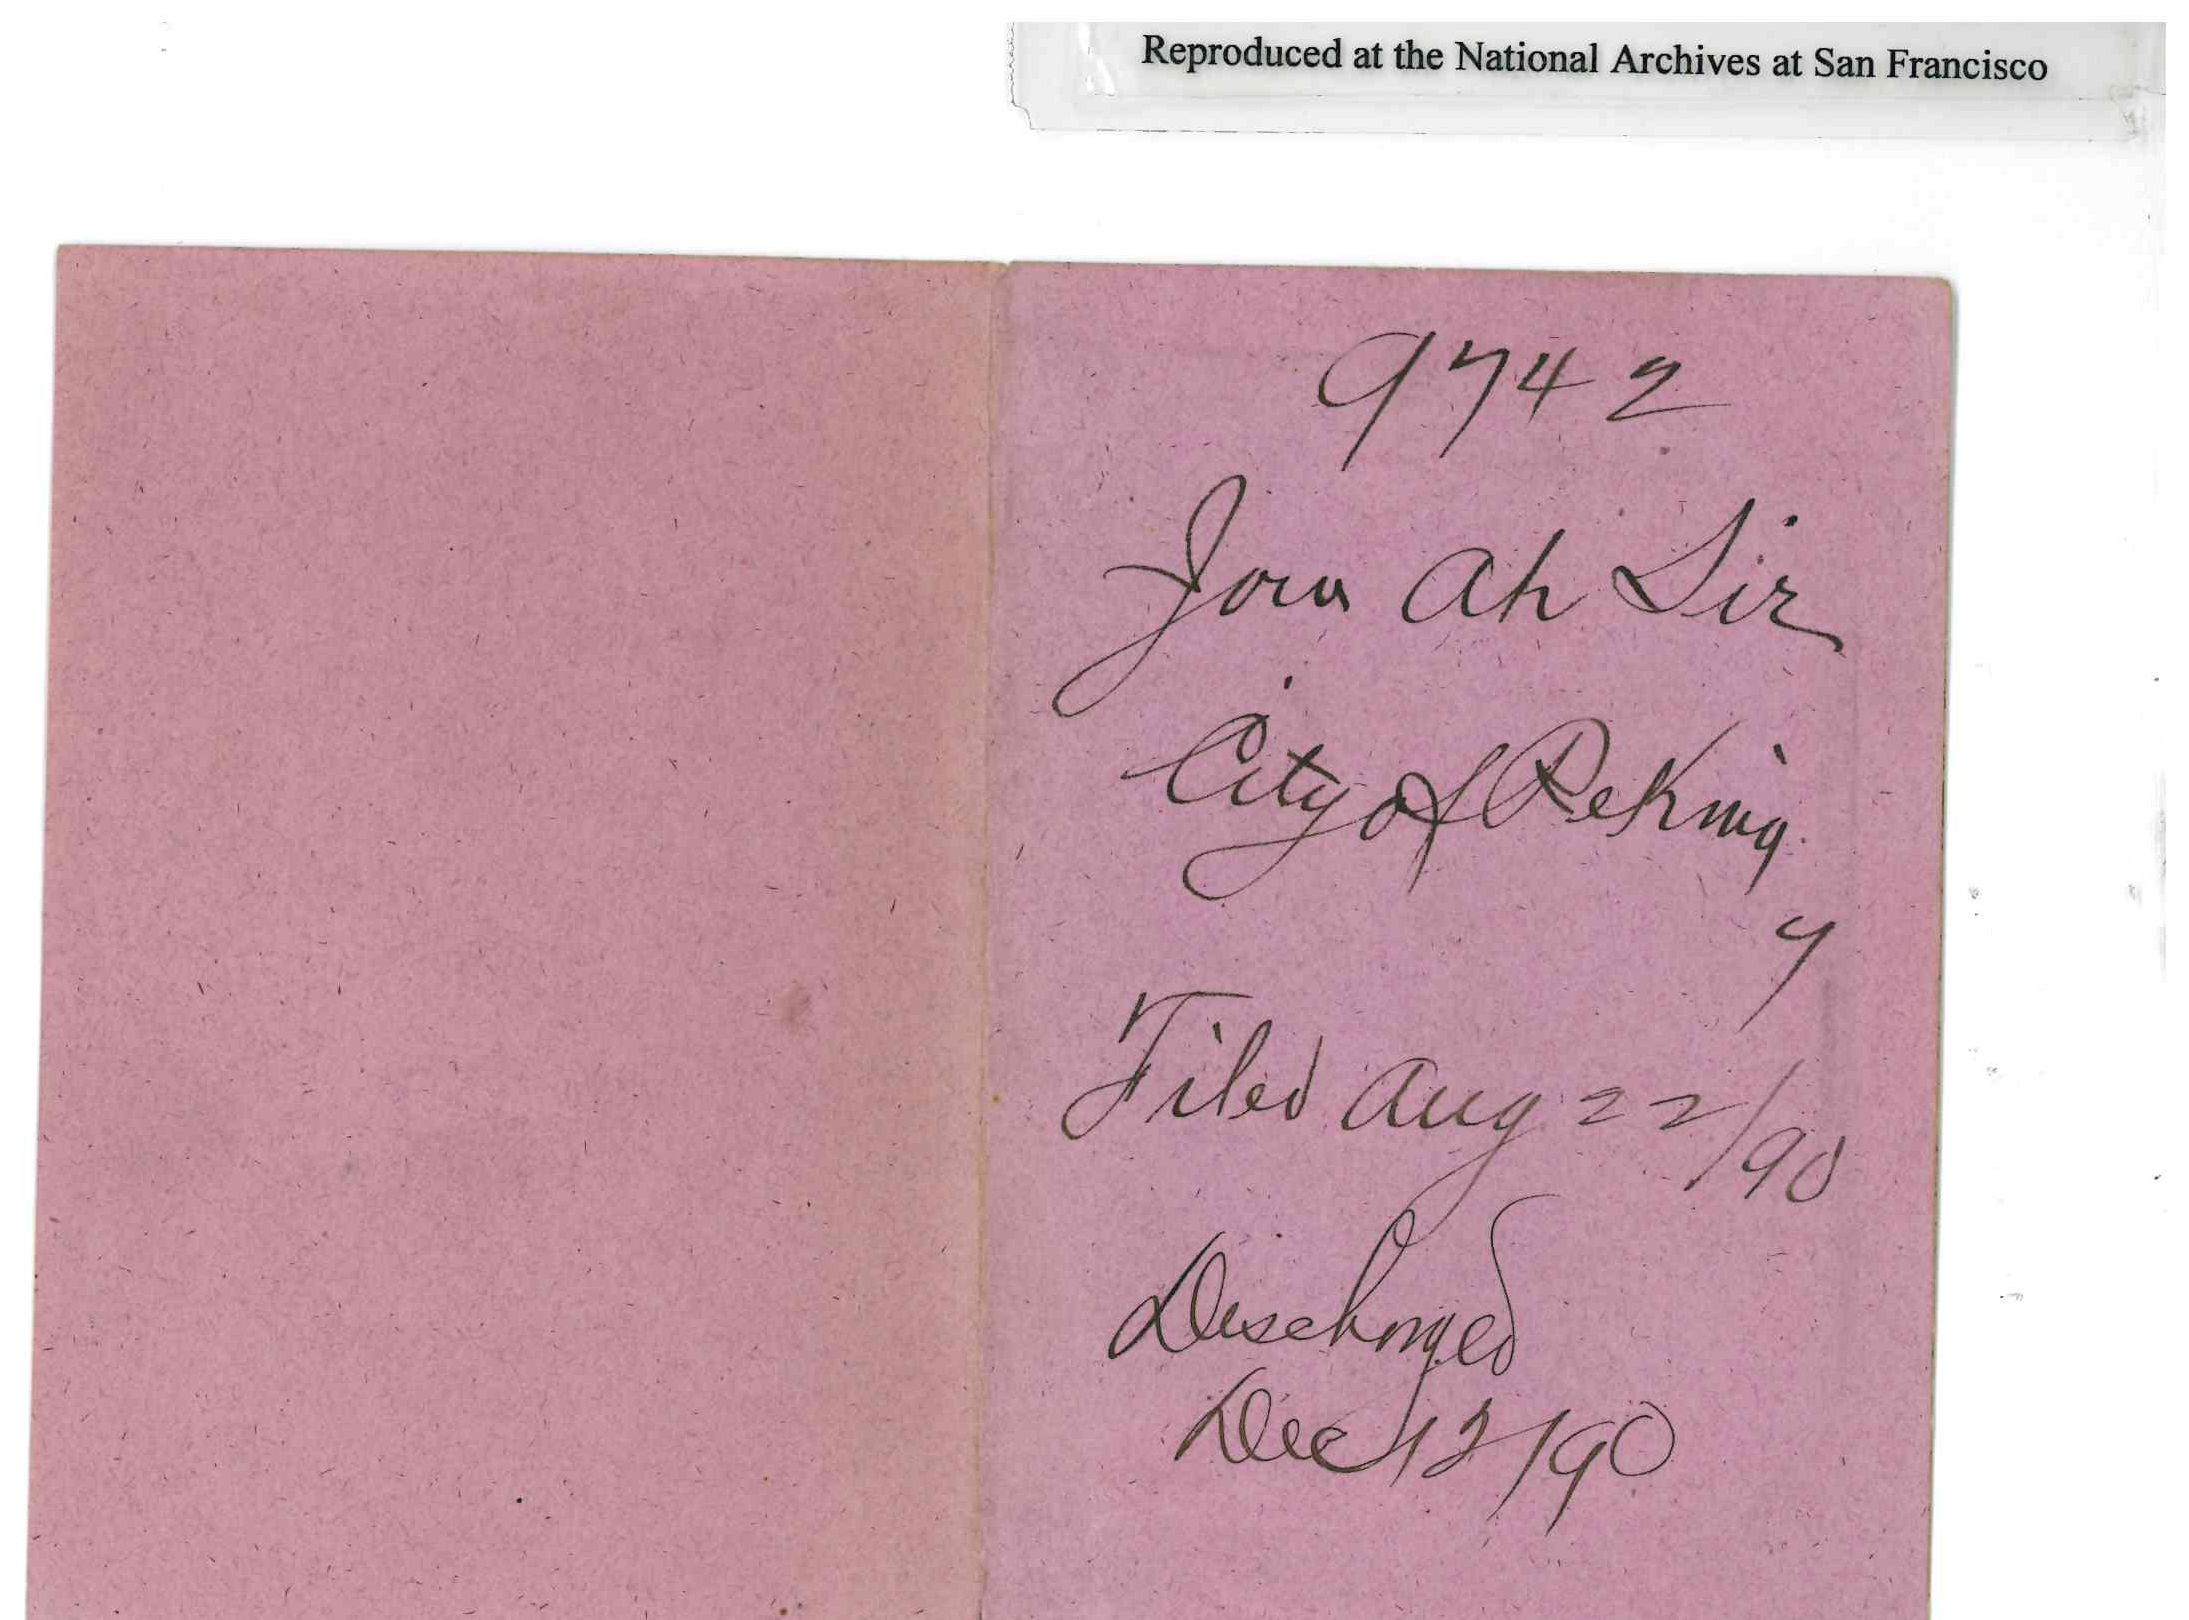 Reproduced at the National Archives at San Francisco
9742
Jow Ah Sir
City of Peking
7
Filed Aug 22/90
Discharged
Dec 12/90